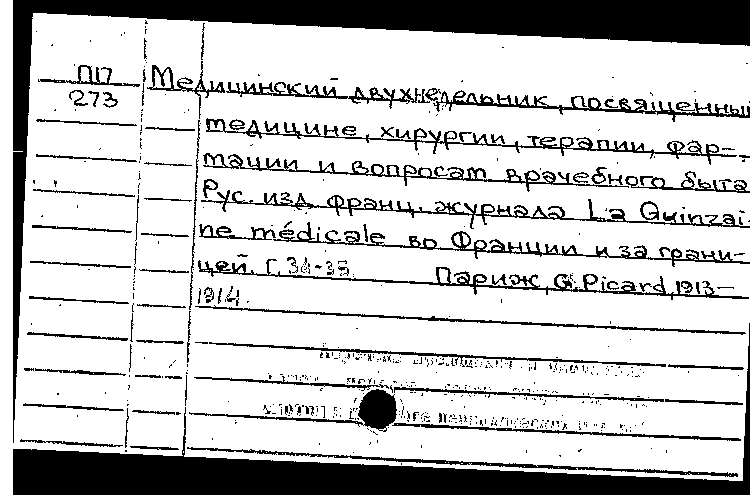 П17 Медицинский двухнедельник, посвященный
273
медицине, хирургии, терапии, фар-
мации и вопросам врачебного быта
Рус. изд. франц. журнала La Quinzai-
ne médicale во Франции и за грани-
цей. Г. 34-35. Париж, G. Picard, 1913-
1914.